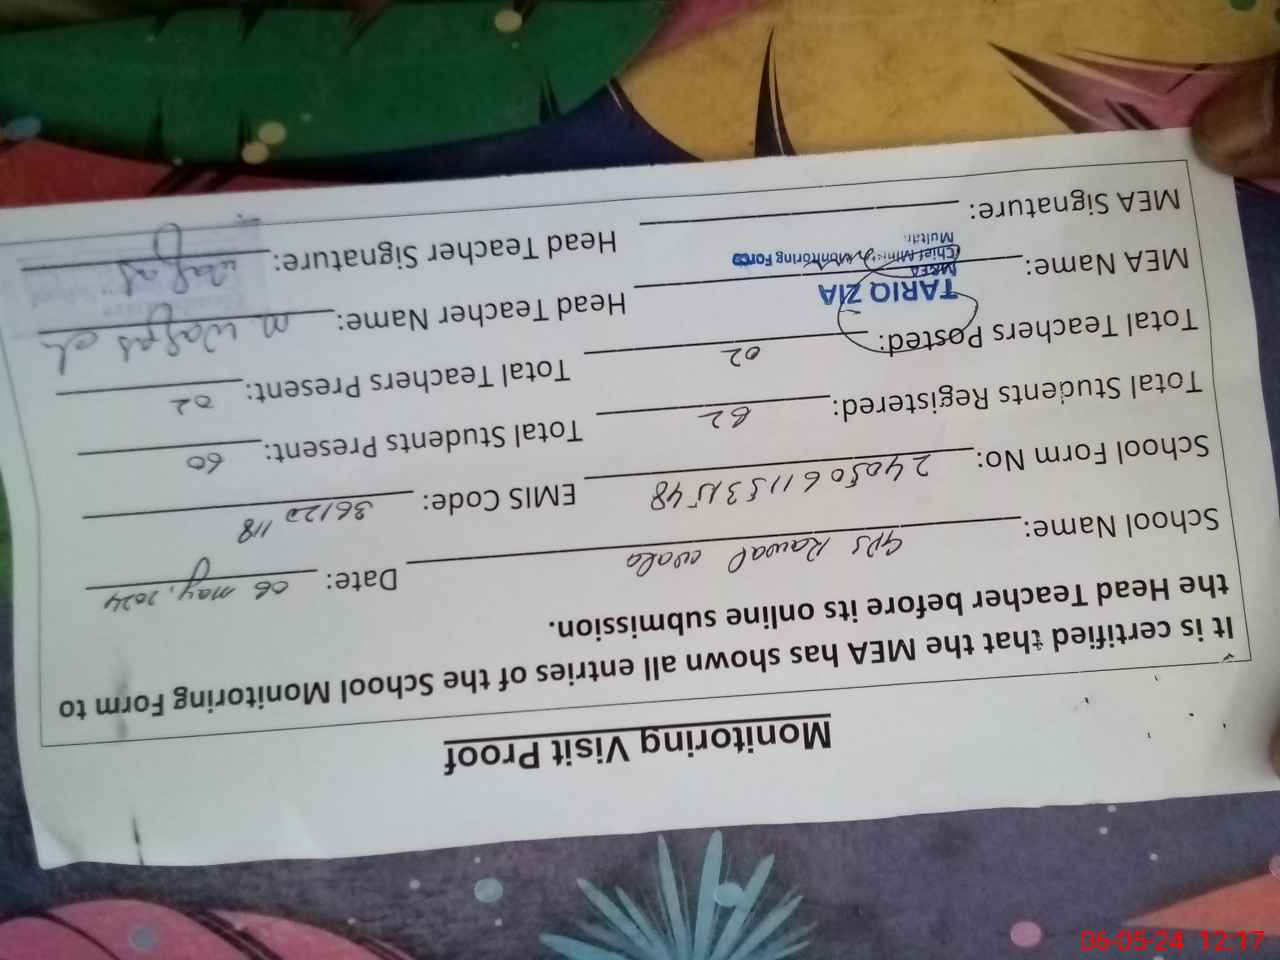 Monitoring Visit Proof
It is certified that the MEA has shown all entries of the School Monitoring Form to
the Head Teacher before its online submission.
School Name: GPS Rawal wala Date: 06 may, 2024
School Form No: EMIS Code: 36120118
Total Students Registered: 82 Total Students Present: 60
Total Teachers Posted: 02 Total Teachers Present: 02
TARIQ ZIA
MEA
MEA Name: Chief Minister's Monitoring Force Head Teacher Name: M. Waqas
Multan.
MEA Signature: Head Teacher Signature: Waqas
06-05-24 12:17